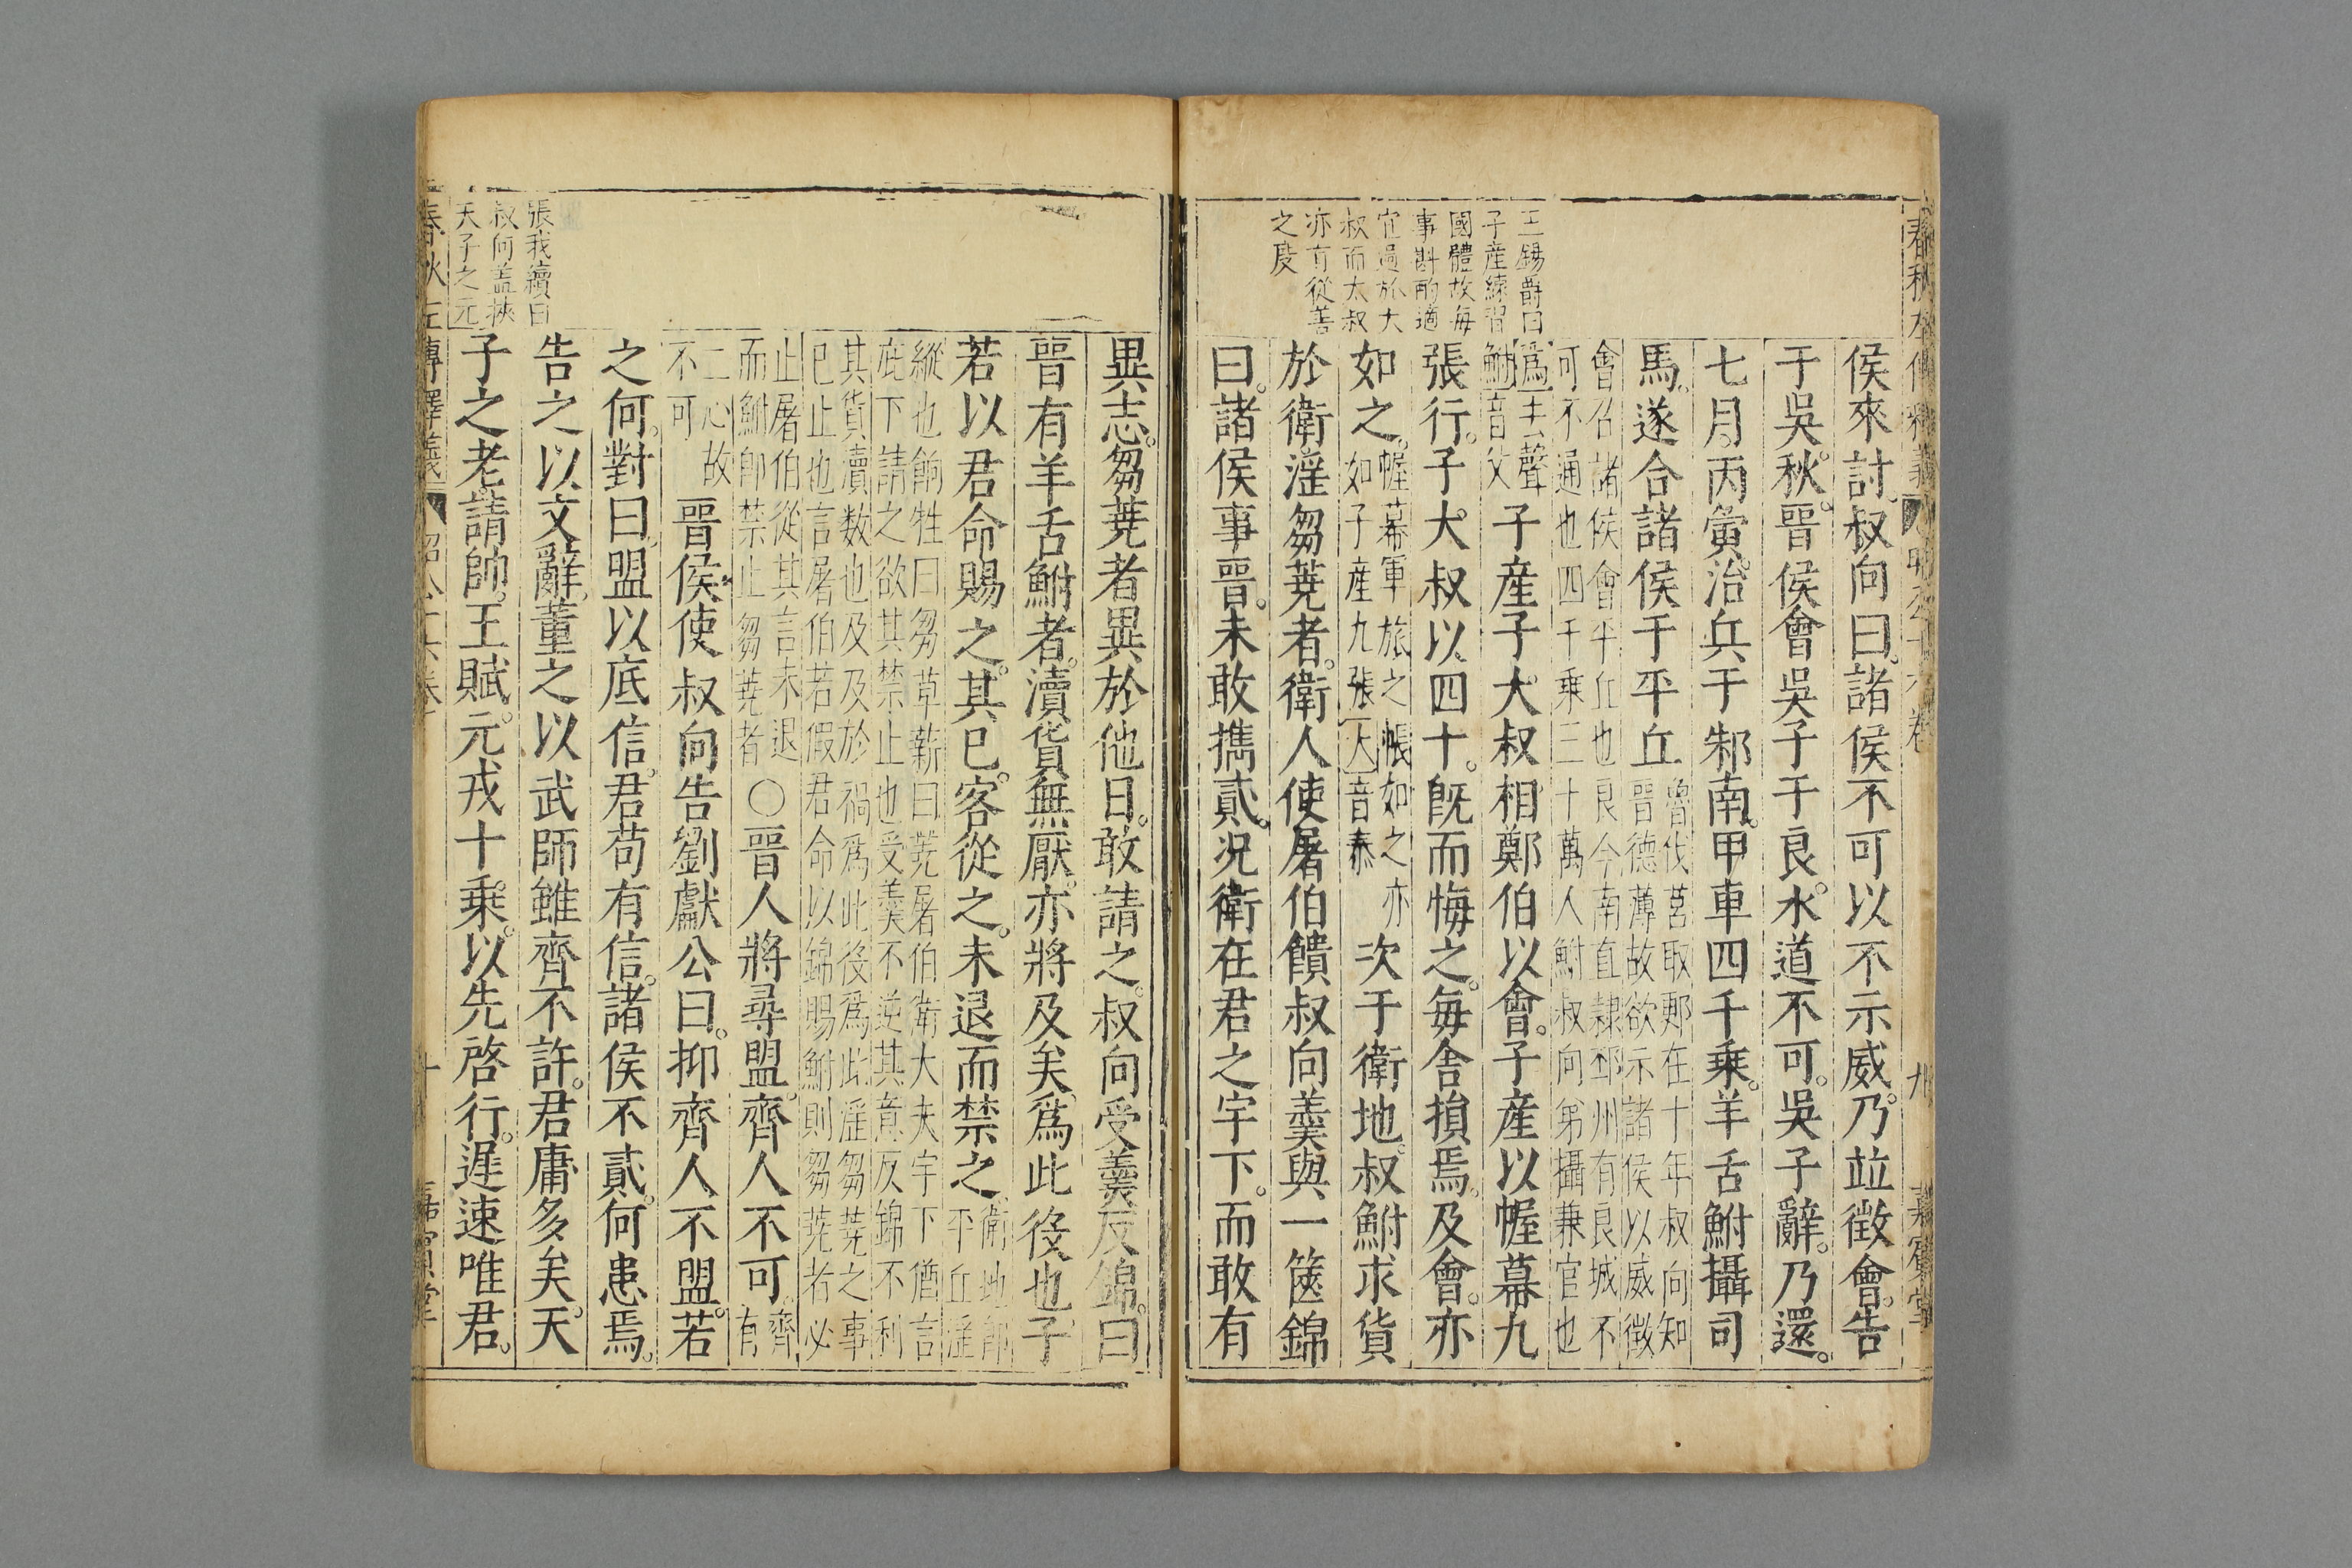 春秋左傳釋義
昭公十六卷
九
嘉賓堂
王錫爵曰
子産練習
國體故每
事斟酌適
宜過於大
叔而太叔
亦有從善
之度
侯來討。叔向曰。諸侯不可以不示威。乃竝徵會。告
于吳。秋。晉侯會吳子于良。水道不可。吳子辭。乃還。
七月丙寅。治兵于邾南。甲車四千乗。羊舌鮒攝司
馬。遂合諸侯于平丘
魯伐莒取鄆在十年叔向知
晉德薄故欲示諸侯以威徵
會召諸侯會平丘也良今南直隷邳州有良城不
可不通也四千乗三十萬人鮒叔向弟攝兼官也
爲去聲
鮒音父
子産子大叔相鄭伯以會。子産以幄幕九
張行。子大叔以四十。旣而悔之。每舍損焉。及會。亦
如之。
幄幕軍旅之帳如之亦
如子産九張大音泰
次于衛地。叔鮒求貨
於衛淫芻蕘者。衛人使屠伯饋叔向羹與一篋錦
曰。諸侯事晉。未敢攜貳。况衛在君之宇下。而敢有
異志。芻蕘者異於他日。敢請之。叔向受羹反錦。曰
晉有羊舌鮒者。瀆貨無厭。亦將及矣。爲此役也。子
若以君命賜之。其已。客從之。未退而禁之。
衛地卽
平丘淫
縱也餉牲曰芻草薪曰蕘屠伯衛大夫宇下猶言
庇下請之欲其禁止也受羹不逆其意反錦不利
其貨瀆数也及及於禍爲此役爲此淫芻蕘之事
已止也言屠伯若假君命以錦賜鮒則芻蕘者必
止屠伯從其言未退
而鮒卽禁止芻蕘者
○晉人將尋盟。齊人不可。
齊
有
二心故
不可
晉侯使叔向告劉獻公曰。抑齊人不盟。若
之何。對曰。盟以底信。君苟有信。諸侯不貳。何患焉。
告之以文辭。董之以武師。雖齊不許。君庸多矣。天
子之老。請帥。王賦。元戎十乗。以先啓行。遲速唯君。
張我續曰
叔何盖挾
天子之元
春秋左傳釋義
昭公十六卷
十
嘉賓堂